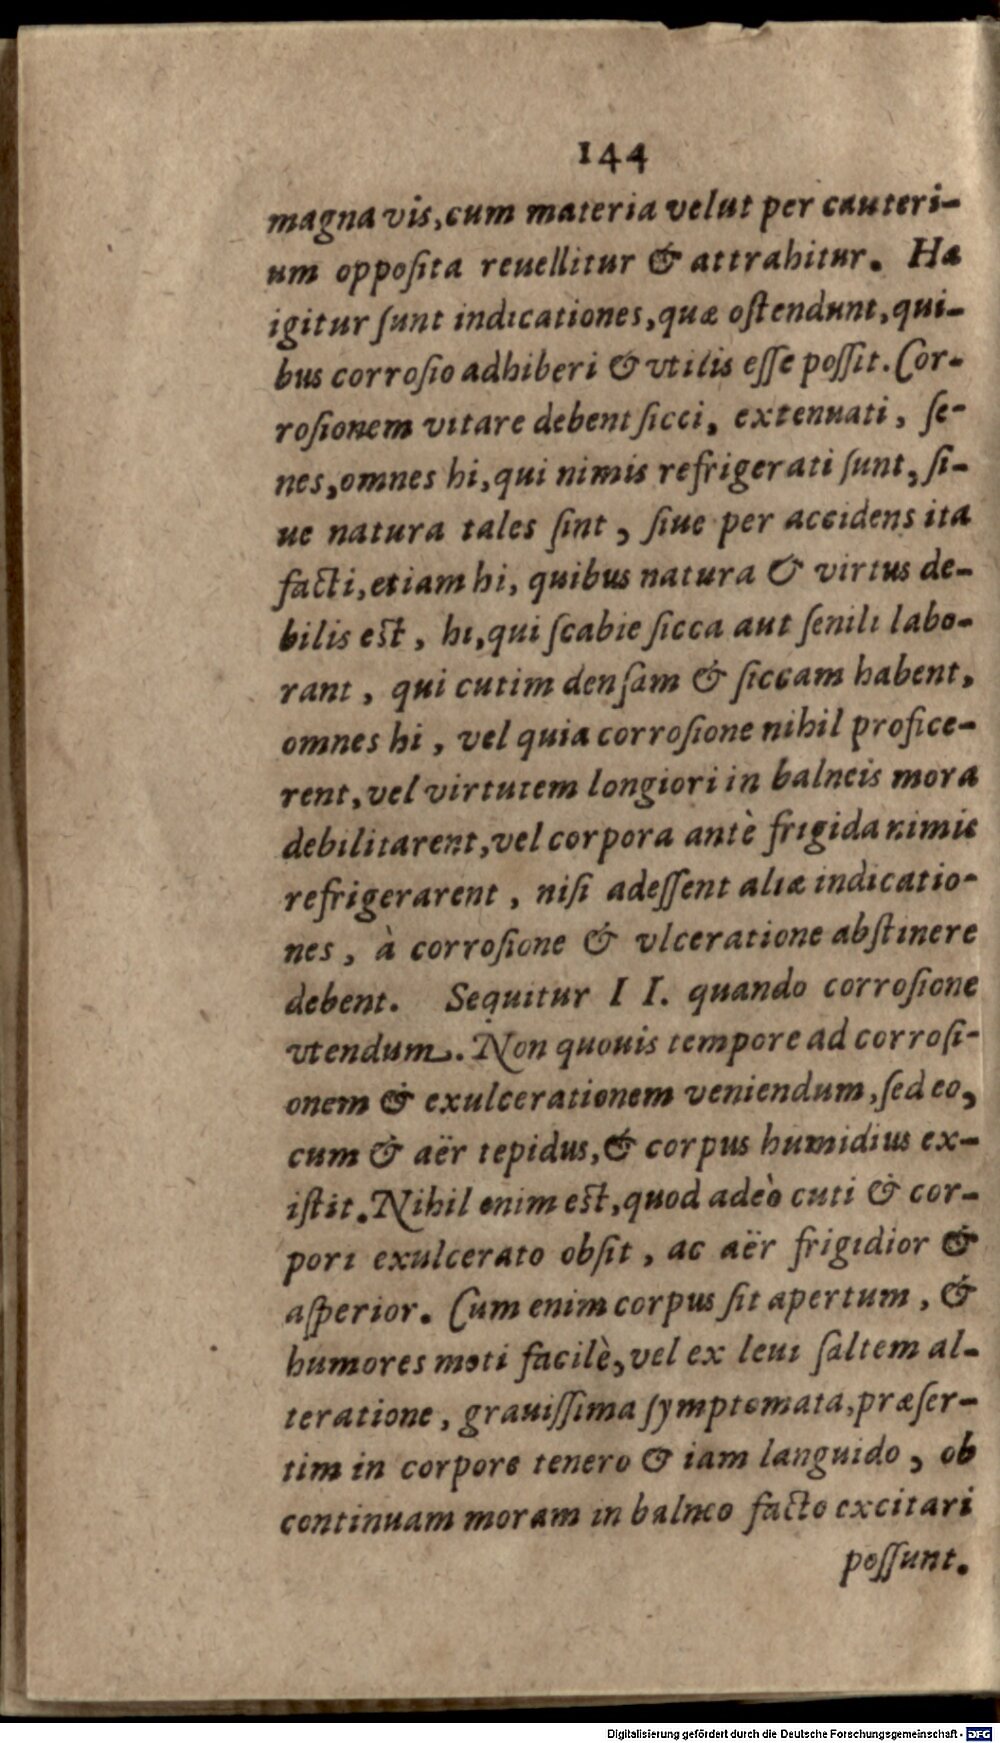 144
magna vis, cum materia velut per cauteri-
um opposita reuellitur & attrahitur. Hæ
igitur ſunt indicationes, quæ oſtendunt, qui-
bus corroſio adhiberi & vtilis eſſe poſſit. Cor-
roſionem vitare debent ſicci, extenuati, ſe-
nes, omnes hi, qui nimis refrigerati ſunt, ſi-
ue natura tales ſint, ſiue per accidens ita
facti, etiam hi, quibus natura & virtus de-
bilis eſt, hi, qui ſcabie ſicca aut ſenili labo-
rant, qui cutim denſam & ſiccam habent,
omnes hi, vel quia corroſione nihil profice-
rent, vel virtutem longiori in balneis mora
debilitarent, vel corpora antè frigida nimis
refrigerarent, niſi adeſſent aliæ indicatio-
nes, à corroſione & vlceratione abſtinere
debent. Sequitur I I. quando corroſione
vtendum. Non quouis tempore ad corroſi-
onem & exulcerationem veniendum, ſed eo,
cum & aër tepidus, & corpus humidius ex-
iſtit. Nihil enim eſt, quod adeò cuti & cor-
pori exulcerato obſit, ac aër frigidior &
aſperior. Cum enim corpus ſit apertum, &
humores moti facilè, vel ex leui ſaltem al-
teratione, grauiſſima ſymptomata, præſer-
tim in corpore tenero & iam languido, ob
continuam moram in balneo facto excitari
poſſunt.
Digitalisierung gefördert durch die Deutsche Forschungsgemeinschaft - DFG